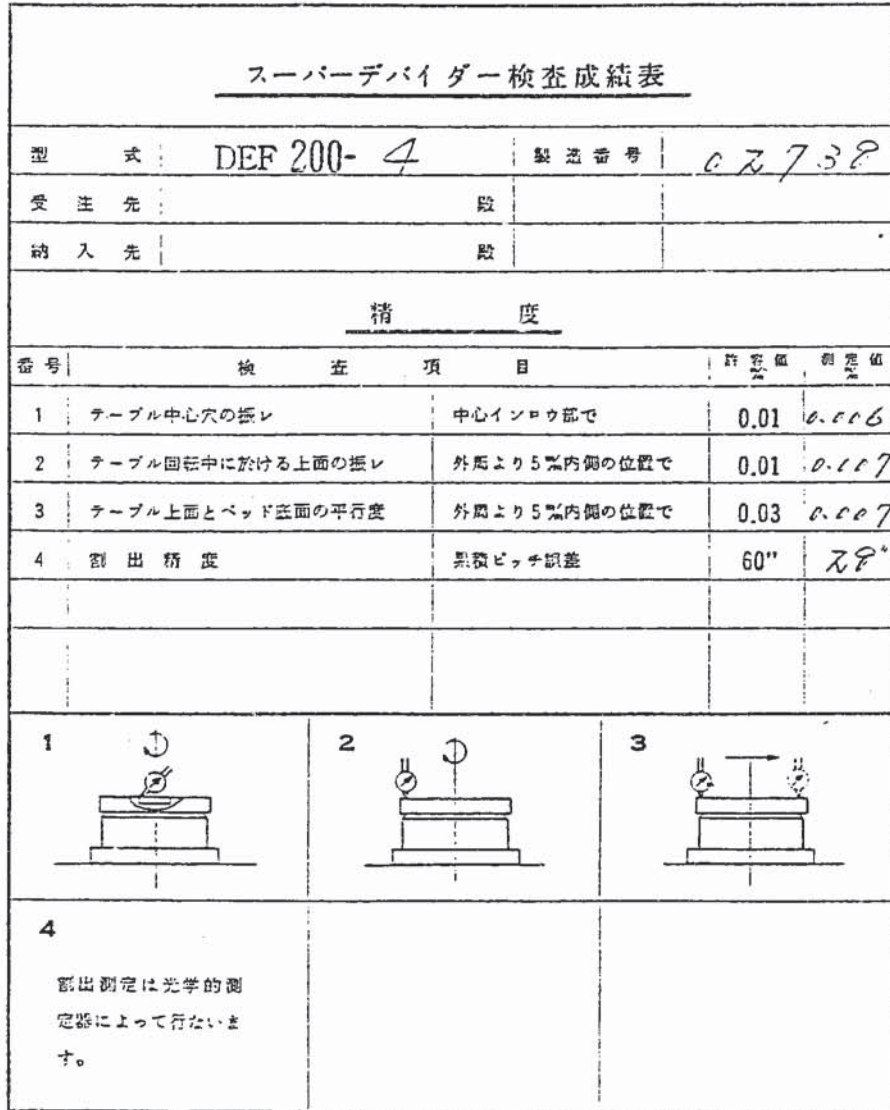 スーパーデバイダー検査成績表
型式 DEF 200- 4 製造番号 02738
受注先 殿
納入先 殿
精度
番号 検査項目 許容値 測定値
1 テーブル中心穴の振レ 中心インロウ部で 0.01 0.006
2 テーブル回転中に於ける上面の振レ 外周より5㎜内側の位置で 0.01 0.007
3 テーブル上面とベッド底面の平行度 外周より5㎜内側の位置で 0.03 0.007
4 割出精度 累積ピッチ誤差 60" 28"
1 2 3
4
割出測定は光学的測
定器によって行ないま
す。